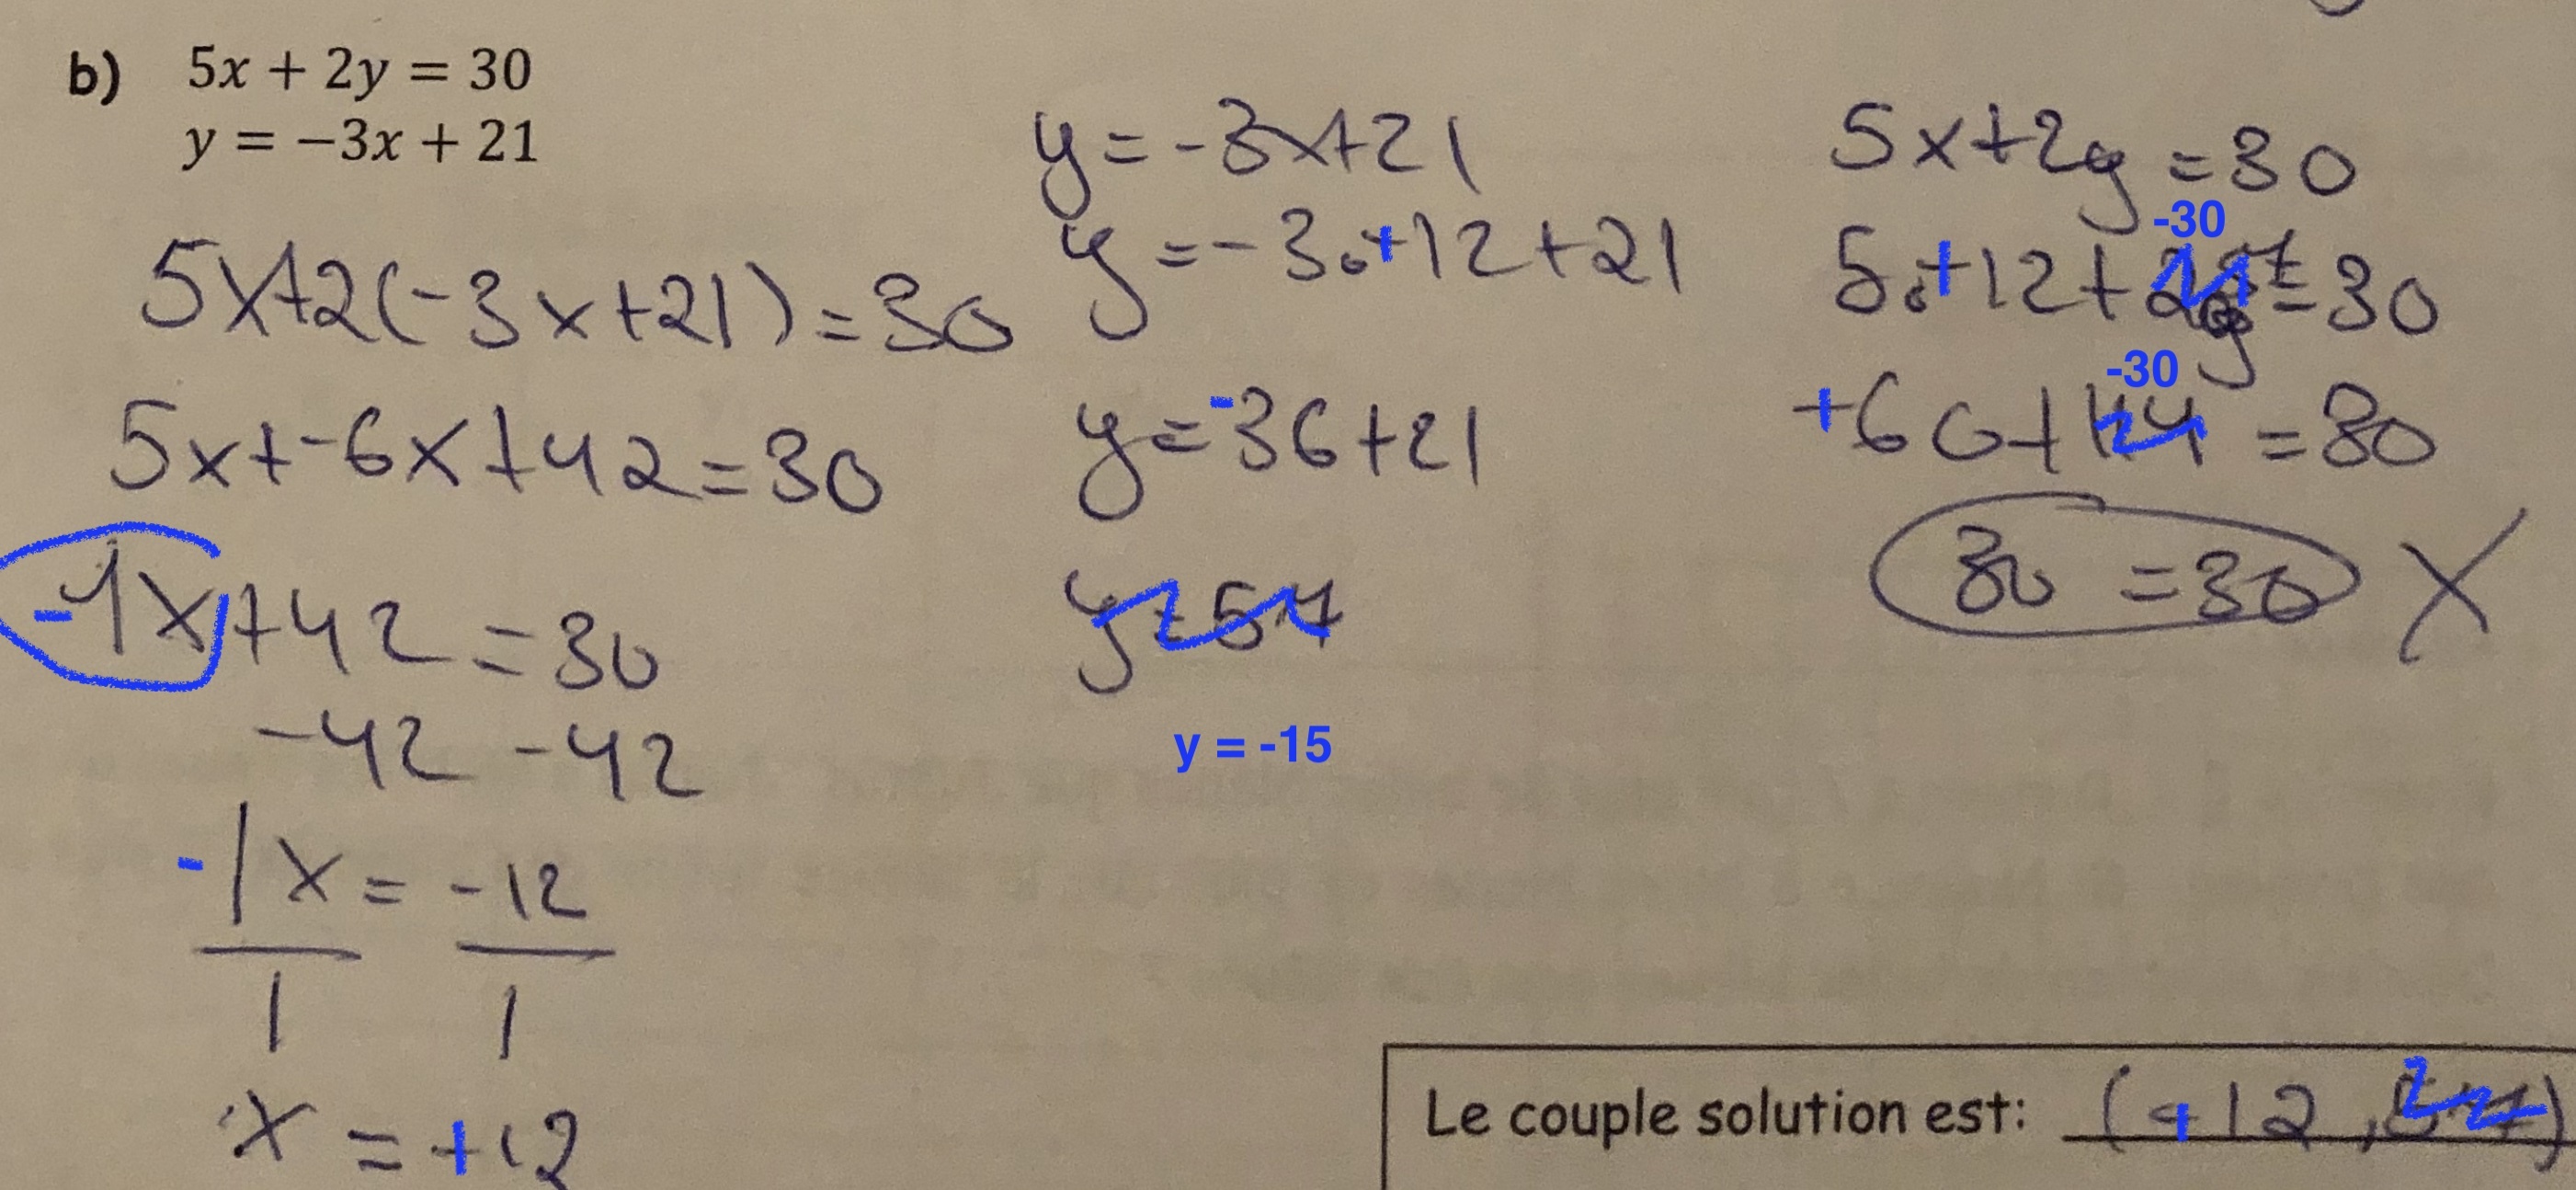 b) 5x + 2y = 30
y = −3x + 21
5x+2(-3x+21)=30
5x+-6x+42=30
-1x+42=30
-42 -42
-1x = -12
1 1
x = +12
y=-3x+21
y=-3.+12+21
y=-36+21
y=57
y = -15
5x+2y=30
-30
5.+12+ =30
-30
+60+114=30
30=30 X
Le couple solution est: (+12, 57)